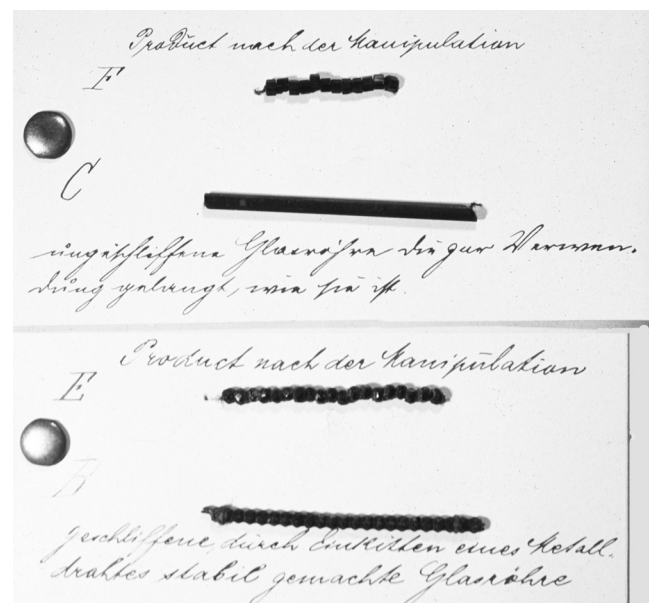 Product nach der Manipulation
F
C
ungeschliffene Glasröhre die zur Verwen-
dung gelangt, wie sie ist.
Product nach der Manipulation
E
B
geschliffene, durch Einkitten eines Metall-
drahtes stabil gemachte Glasröhre